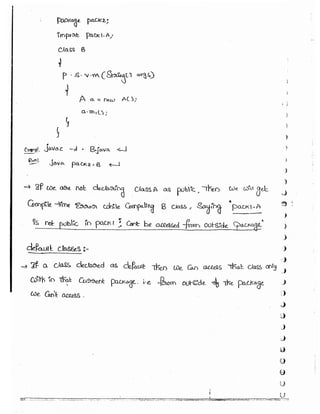 package pack2;
import pack1.A;
class B
{
p.s.v.m(String[] args)
{
A a = new A();
a.m1();
}
}
Compl: javac -d . B.java ↵
Run: java pack2.B ↵
→ If we are not declaring class A as public, then we will get
Compile time Error while Compiling B class, Saying "pack1.A
is not public in pack1; Can't be accessed from outside package"
default classes :-
→ If a class declared as default then we can access that class only
with in that Current package. i.e from outside of the package
we Can't access.